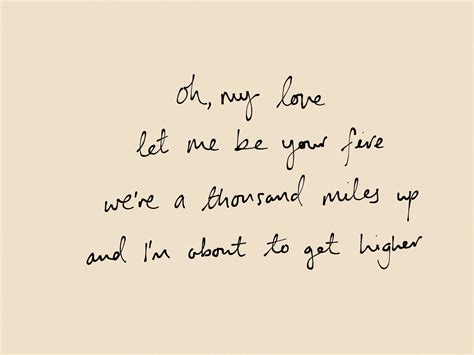 oh, my love
let me be your fire
we're a thousand miles up
and I'm about to get higher